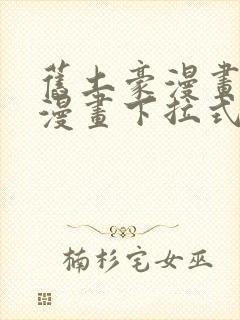 舊土豪漫畫
漫畫下拉式
楠杉宅女巫